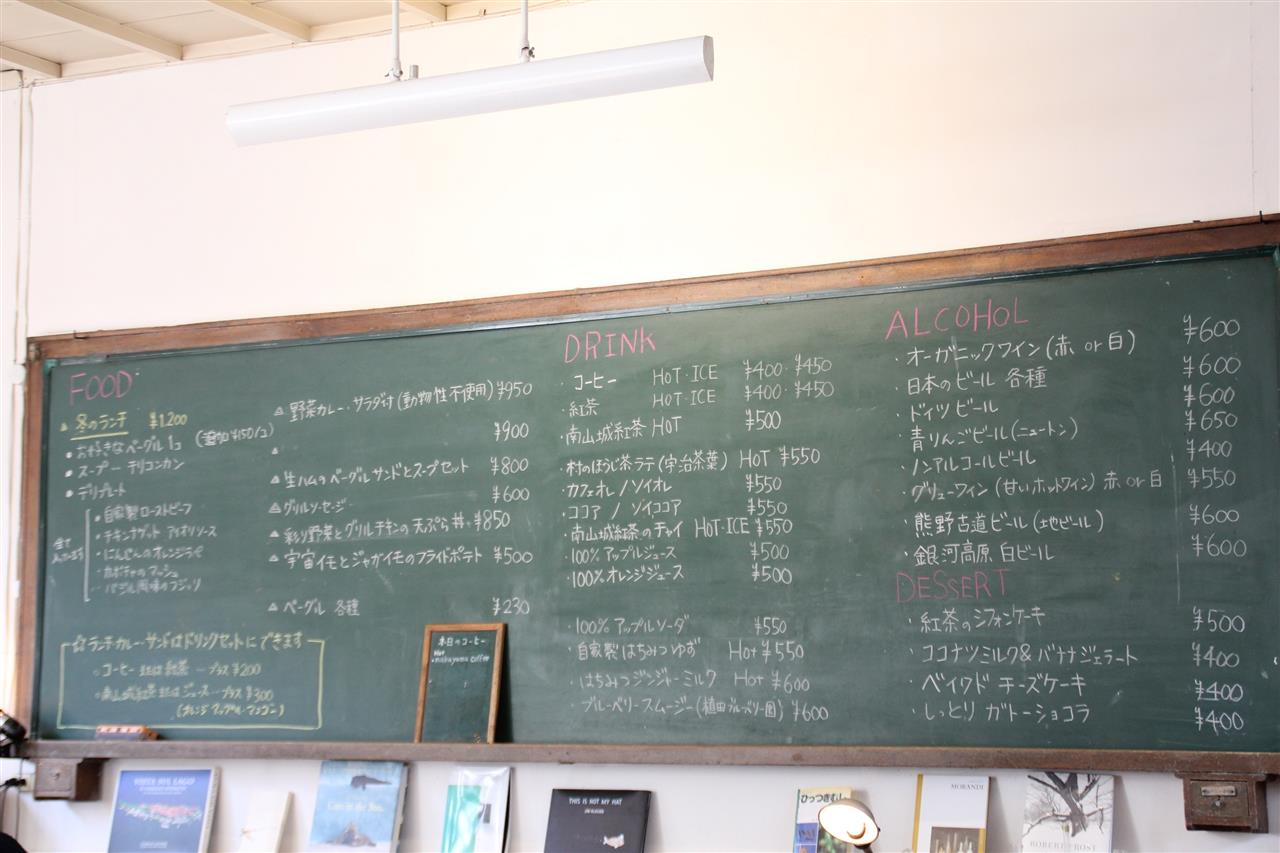 FOOD
冬のランチ ¥1,200
・お好きなベーグル1コ (追加¥150/コ)
・スープ デリコンカン
・デリプレート
・自家製ローストビーフ
・チキンナゲット アイオリソース
・にんじんのオレンジラペ
・カボチャのマッシュ
・バジル風味のフジッリ
☆ランチカレー・サンドはドリンクセットにできます
○コーヒー または 紅茶 … プラス ¥200
○南山城紅茶 または ジュース … プラス ¥300
(オレンジ・アップル・マンゴー)
△ 野菜カレー・サラダ付(動物性不使用) ¥950
¥900
△ 生ハムのベーグルサンドとスープセット ¥800
△ グリルソーセージ ¥600
△ 彩り野菜とグリルチキンの天ぷら丼 ¥850
△ 宇宙イモとジャガイモのフライドポテト ¥500
△ ベーグル 各種 ¥230
本日のコーヒー
Hot
・nakayama coffee
DRINK
・コーヒー HOT・ICE ¥400・¥450
・紅茶 HOT・ICE ¥400・¥450
・南山城紅茶 HOT ¥500
・村のほうじ茶ラテ(宇治茶葉) HOT ¥550
・カフェオレ / ソイオレ ¥550
・ココア / ソイココア ¥550
・南山城紅茶のチャイ HOT・ICE ¥550
・100% アップルジュース ¥500
・100% オレンジジュース ¥500
・100% アップルソーダ ¥550
・自家製はちみつゆず Hot ¥550
・はちみつジンジャーミルク Hot ¥600
・ブルーベリースムージー(植田ブルーベリー園) ¥600
ALCOHOL
・オーガニックワイン(赤 or 白) ¥600
・日本のビール 各種 ¥600
・ドイツビール ¥600
・青りんごビール(ニュートン) ¥650
・ノンアルコールビール ¥400
・グリューワイン(甘いホットワイン) 赤 or 白 ¥550
・熊野古道ビール(地ビール) ¥600
・銀河高原 白ビール ¥600
DESSERT
・紅茶のシフォンケーキ ¥500
・ココナツミルク&バナナジェラート ¥400
・ベイクドチーズケーキ ¥400
・しっとり ガトーショコラ ¥400
THIS IS NOT MY HAT
ひっつきむし
MORANDI
ROBERT FROST